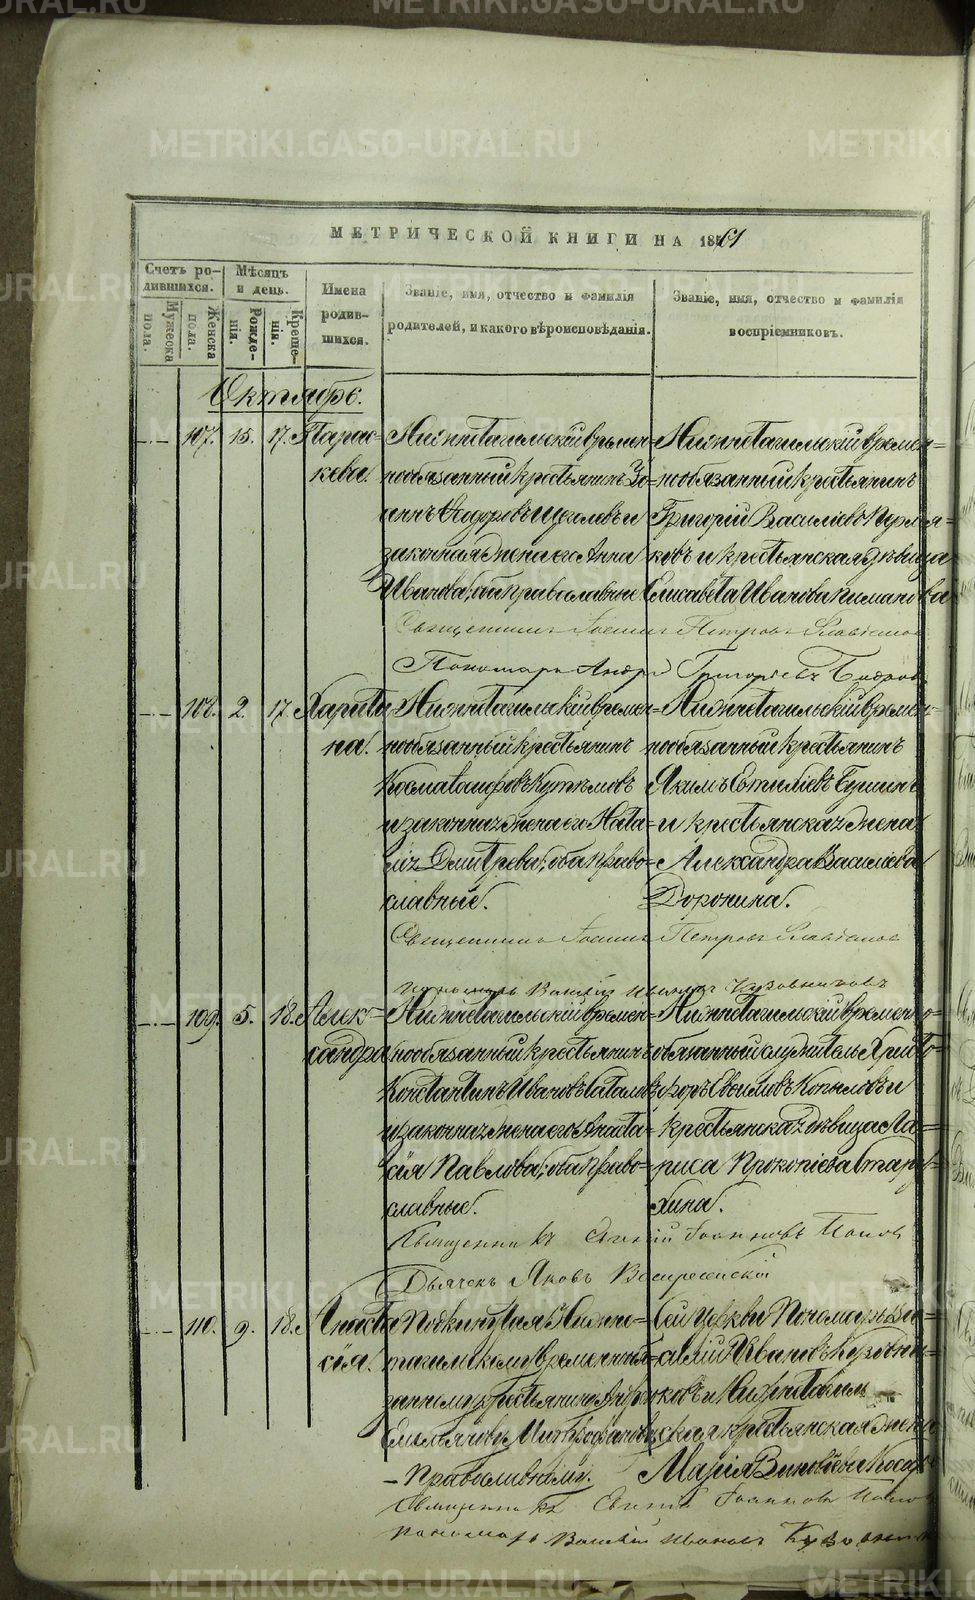 МЕТРИЧЕСКОЙ КНИГИ НА 1861
Счетъ ро-
дившихся.
Мужеска
пола.
Женска
пола.
Мѣсяцъ
и день.
Рожде-
нія.
Креще-
нія.
Имена
родив-
шихся.
Званіе, имя, отчество и фамилія
родителей, и какого вѣроисповѣданія.
Званіе, имя, отчество и фамилія
воспріемниковъ.
Октябрь.
107. 15. 17. Парас-
кева.
Нижнетагильскій времен-
нообязанный крестьянинъ Іо-
аннъ Ѳедоровъ Щеголевъ и
законная жена его Анна
Иванова, оба православные
Нижнетагильскій времен-
нообязанный крестьянинъ
Григорій Василіевъ ПерМя-
ковъ и крестьянская дѣвица
Елисавета Иванова
Священникъ Іоаннъ Петровъ Славнинъ
Пономарь Андрей Григорьевъ
108. 2. 17. Харити-
на.
Нижнетагильскій времен-
нообязанный крестьянинъ
Косма
и законная жена его Ната-
лія Дмитріева, оба право-
славные.
Нижнетагильскій времен-
нообязанный крестьянинъ
Якимъ
и крестьянская жена
Александра Василіева
Доронина.
Священникъ Іоаннъ Петровъ
Пономарь Василій Ивановъ Кузовниковъ
109. 5. 18. Алек-
сандра
Нижнетагильскій времен-
нообязанный крестьянинъ
Константинъ Ивановъ
и законная жена его Анаста-
сія Павлова, оба право-
славные.
Нижнетагильскій временно-
обязанный служитель Христо-
форъ Копыловъ и
крестьянская дѣвица Ла-
риса Прокопіева Стару-
хина.
Священникъ Евгеній Іоанновъ Поповъ
Дьячекъ Яковъ Воскресенскій
110. 9. 18. Анаста-
сія.
Подкинутая Нижне-
тагильскому временнообя-
занному крестьянину
Емельянову Митрофанову
Православному.
Сей церкви Пономарь Ва-
силій Ивановъ Кузовни-
ковъ и Нижнетагиль-
ская крестьянская жена
Марія
Священникъ Евгеній Іоанновъ Поповъ
Пономарь Василій Ивановъ
METRIKI.GASO-URAL.RU